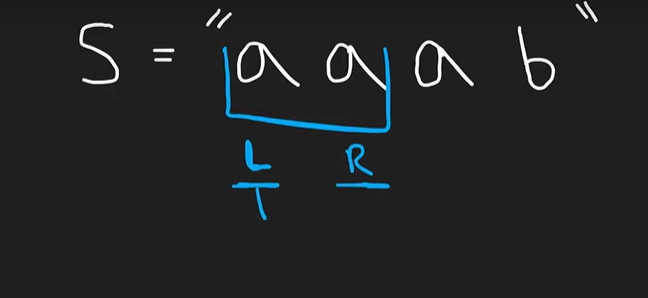 S = "a a a b"
L R